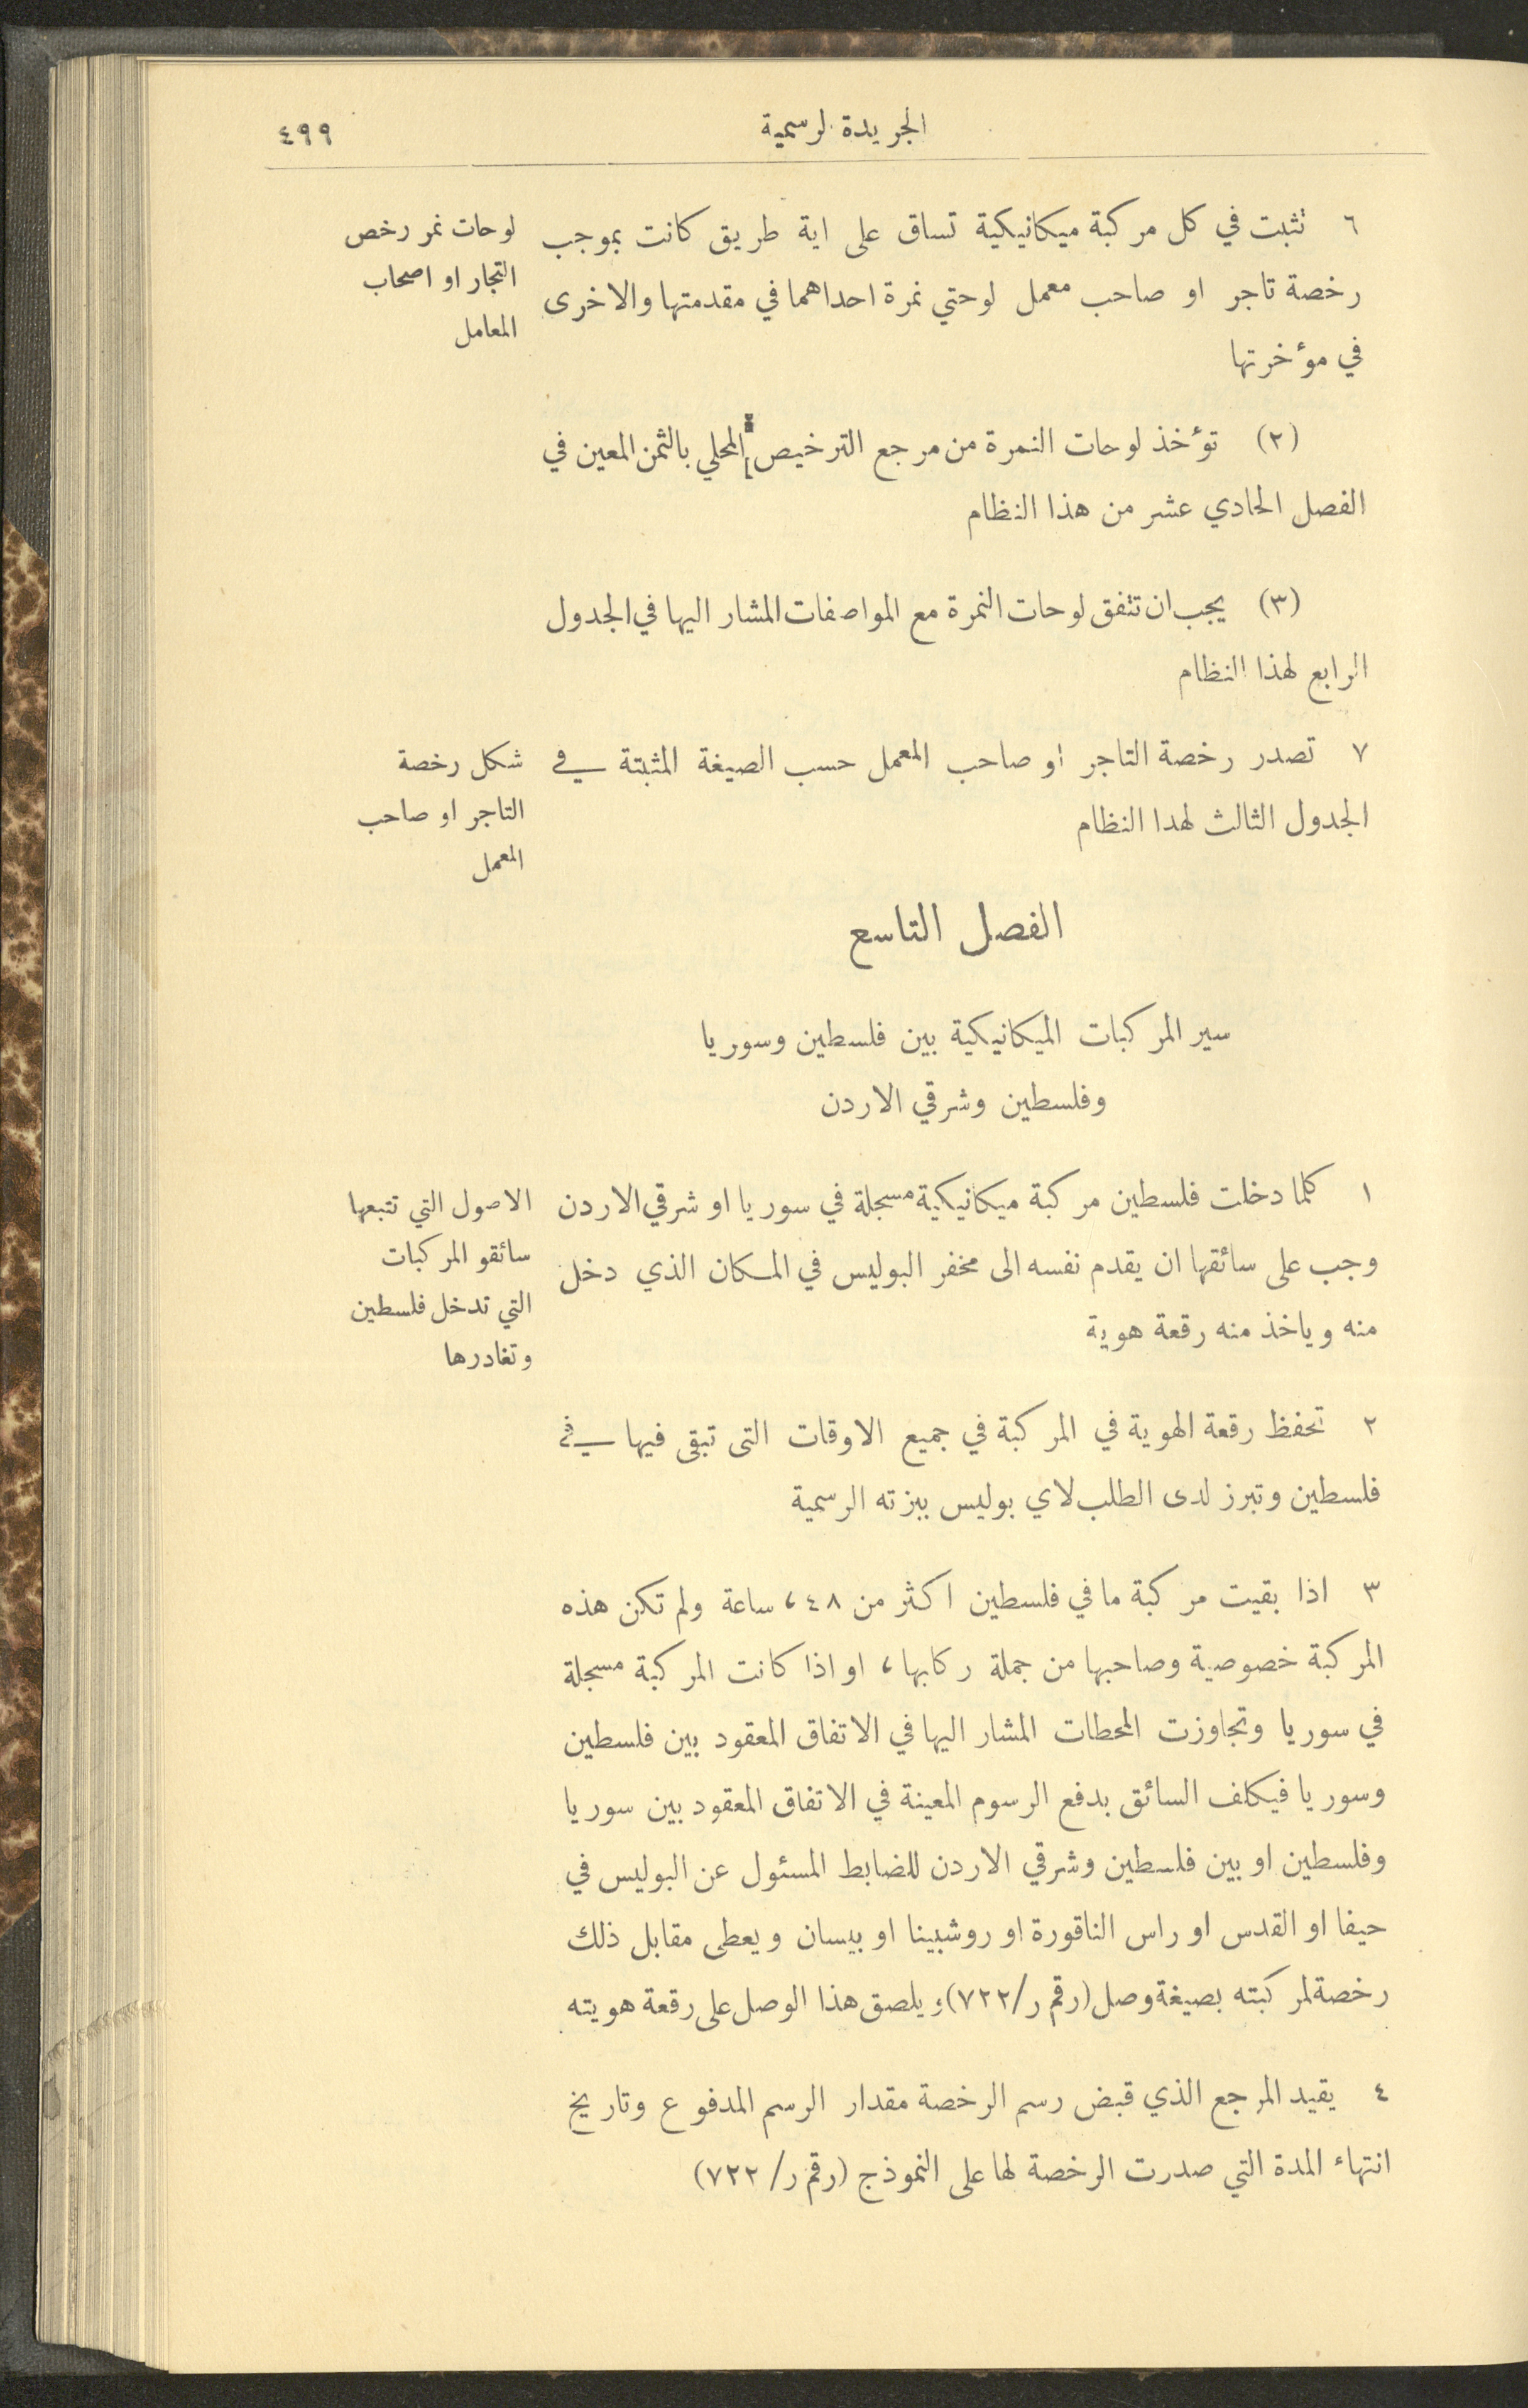 الجريدة الرسمية
٤٩٩
٦ تثبت في كل مركبة ميكانيكية تساق على اية طريق كانت بموجب
رخصة تاجر او صاحب معمل لوحتي نمرة احداهما في مقدمتها والاخرى
في مؤخرتها
لوحات نمر رخص
التجار او اصحاب
المعامل
(٢) تؤخذ لوحات النمرة من مرجع الترخيص المحلي بالثمن المعين في
الفصل الحادي عشر من هذا النظام
(٣) يجب ان تتفق لوحات النمرة مع المواصفات المشار اليها في الجدول
الرابع لهذا النظام
٧ تصدر رخصة التاجر او صاحب المعمل حسب الصيغة المثبتة في
الجدول الثالث لهدا النظام
شكل رخصة
التاجر او صاحب
المعمل
الفصل التاسع
سير المركبات الميكانيكية بين فلسطين وسوريا
وفلسطين وشرقي الاردن
١ كلما دخلت فلسطين مركبة ميكانيكية مسجلة في سوريا او شرقي الاردن
وجب على سائقها ان يقدم نفسه الى مخفر البوليس في المكان الذي دخل
منه وياخذ منه رقعة هوية
الاصول التي تتبعها
سائقو المركبات
التي تدخل فلسطين
وتغادرها
٢ تحفظ رقعة الهوية في المركبة في جميع الاوقات التى تبقى فيها في
فلسطين وتبرز لدى الطلب لاي بوليس ببزته الرسمية
٣ اذا بقيت مركبة ما في فلسطين اكثر من ٤٨، ساعة ولم تكن هذه
المركبة خصوصية وصاحبها من جملة ركابها، او اذا كانت المركبة مسجلة
في سوريا وتجاوزت المحطات المشار اليها في الاتفاق المعقود بين فلسطين
وسوريا فيكلف السائق بدفع الرسوم المعينة في الاتفاق المعقود بين سوريا
وفلسطين او بين فلسطين وشرقي الاردن للضابط المسئول عن البوليس في
حيفا او القدس او راس الناقورة او روشبينا او بيسان ويعطى مقابل ذلك
رخصة لمركبته بصيغة وصل (رقم ر/٧٢٢) ويلصق هذا الوصل على رقعة هويته
٤ يقيد المرجع الذي قبض رسم الرخصة مقدار الرسم المدفوع وتاريخ
انتهاء المدة التي صدرت الرخصة لها على النموذج (رقم ر/ ٧٢٢)